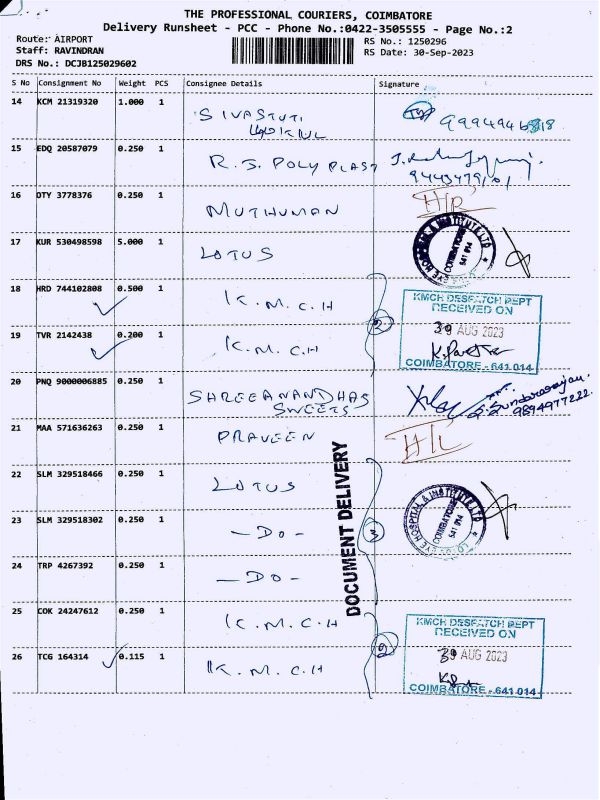 THE PROFESSIONAL COURIERS, COIMBATORE
Delivery Runsheet - PCC - Phone No.:0422-3505555 - Page No.:2
Route: AIRPORT
Staff: RAVINDRAN
DRS No.: DCJB125029602
RS No.: 1250296
RS Date: 30-Sep-2023
S No Consignment No Weight PCS Consignee Details Signature
14 KCM 21319320 1.000 1 SIVASTUTI
15 EDQ 20587079 0.250 1 R.S. POLY PLAST
9443479101
16 OTY 3778376 0.250 1 MUTHUMAN
17 KUR 530498598 5.000 1 LOTUS
EYE HOSPITAL & INSTITUTE LTD
COIMBATORE
641 014
18 HRD 744102808 0.500 1 K.M.C.H
2
KMCH DESPATCH DEPT
RECEIVED ON
AUG 2023
COIMBATORE - 641 014
19 TVR 2142438 0.200 1 K.M.C.H
20 PNQ 9000006885 0.250 1 SHREEANANDHAS
SWEETS
S. Sundararajan.
9894977222.
21 MAA 571636263 0.250 1 PRAVEEN
DOCUMENT DELIVERY
22 SLM 329518466 0.250 1 LOTUS
EYE HOSPITAL & INSTITUTE LTD
COIMBATORE
641 014
23 SLM 329518302 0.250 1 - DO -
3
24 TRP 4267392 0.250 1 - DO -
25 COK 24247612 0.250 1 K.M.C.H
2
KMCH DESPATCH DEPT
RECEIVED ON
AUG 2023
COIMBATORE - 641 014
26 TCG 164314 0.115 1 K.M.C.H